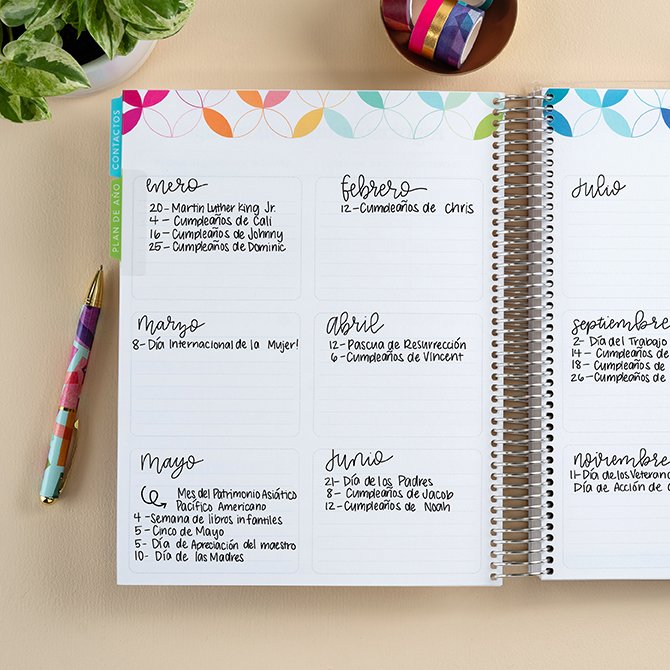 CONTACTOS
PLAN DE AÑO
enero
20- Martin Luther King Jr.
4 - Cumpleaños de Cali
16 - Cumpleaños de Johnny
25 - Cumpleaños de Dominic
febrero
12 -Cumpleaños de Chris
marzo
8- Día Internacional de la Mujer!
abril
12 - Pascua de Resurrección
6 - Cumpleaños de Vincent
mayo
Mes del Patrimonio Asiático
Pacífico Americano
4 -Semana de libros infantiles
5 - Cinco de Mayo
5 - Día de Apreciación del maestro
10- Día de las Madres
junio
21- Día de los Padres
8 - Cumpleaños de Jacob
12 - Cumpleaños de Noah
julio
septiembre
2- Día del Trabajo
14 - Cumpleaños de
18 - Cumpleaños de
26 - Cumpleaños de
noviembre
11- Día de los
Día de Acción de